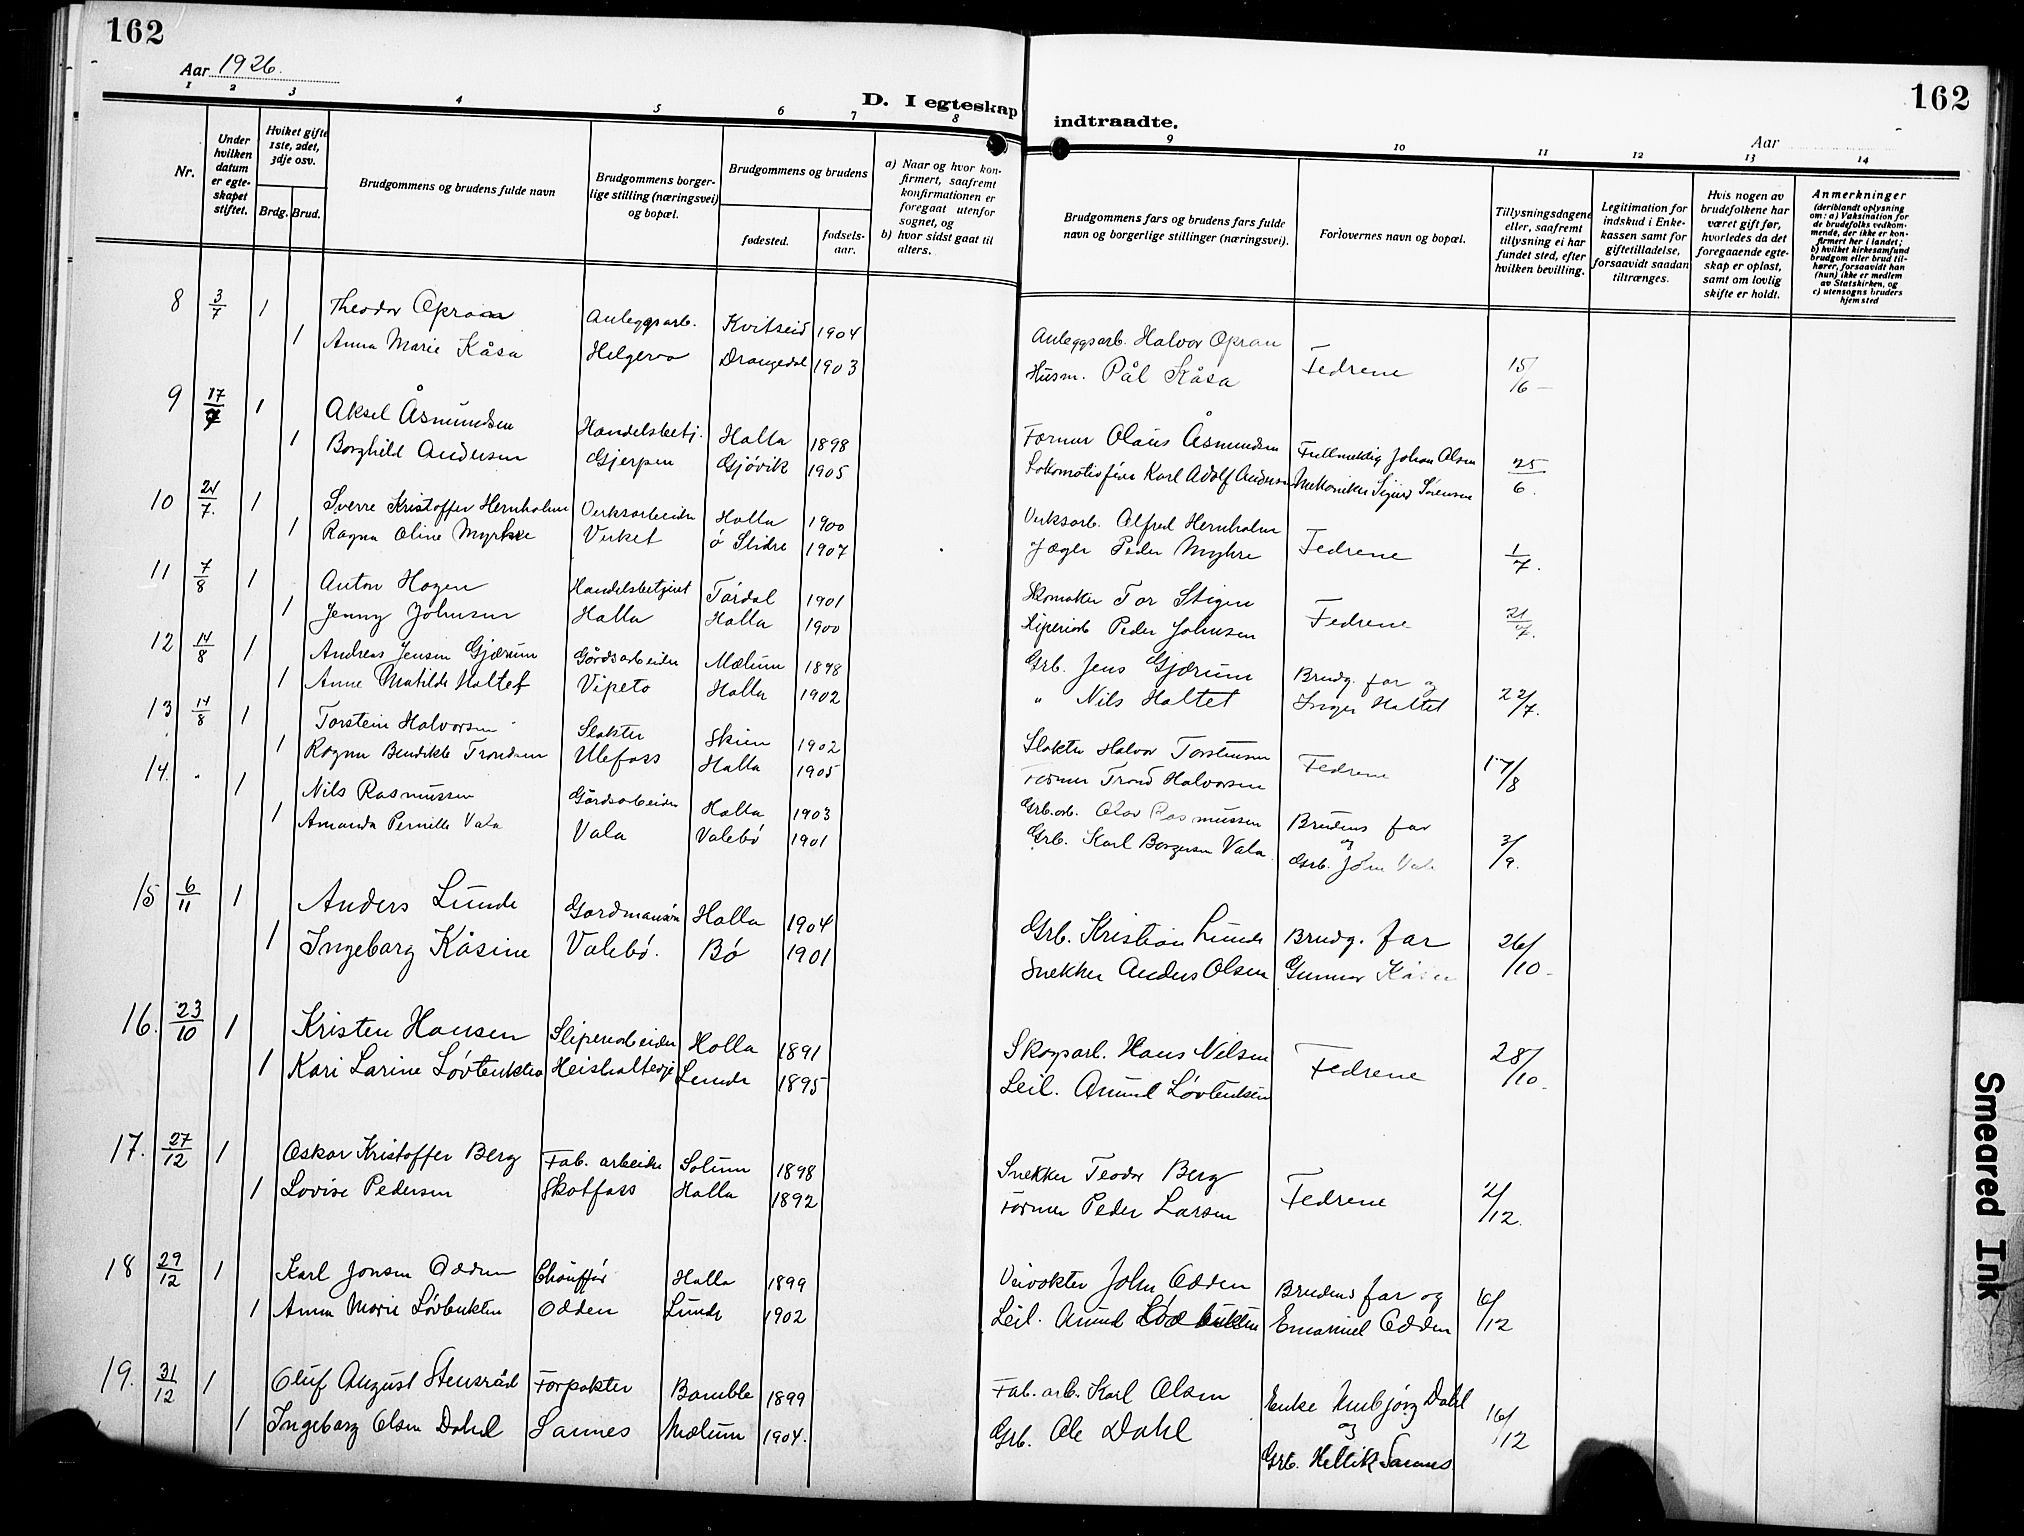 162
Aar 1926.
D. I egteskap indtraadte.
162
Aar
1 2 3 4 5 6 7 8 9 10 11 12 13 14
Nr.
Under hvilken datum er egteskapet stiftet.
Hviket gifte 1ste, 2det, 3dje osv.
Brdg. Brud.
Brudgommens og brudens fulde navn
Brudgommens borgerlige stilling (næringsvei) og bopæl.
Brudgommens og brudens
fødested.
fødselsaar.
a) Naar og hvor konfirmert, saafremt konfirmationen er foregaat utenfor sognet, og
b) hvor sidst gaat til alters.
Brudgommens fars og brudens fars fulde navn og borgerlige stillinger (næringsvei).
Forlovernes navn og bopæl.
Tillysningsdagene eller, saafremt tillysning ei har fundet sted, efter hvilken bevilling.
Legitimation for indskud i Enkekassen samt for giftetilladelse, forsaavidt saadan tiltrænges.
Hvis nogen av brudefolkene har været gift før, hvorledes da det foregaaende egteskap er opløst, samt om lovlig skifte er holdt.
Anmerkninger (deriblandt oplysning om: a) Vaksination for de brudefolks vedkommende, der ikke er konfirmert her i landet; b) hvilket kirkesamfund brudgom eller brud tilhører, forsaavidt han (hun) ikke er medlem av Statskirken, og c) utensogns bruders hjemsted
8 3/7 1 Theodor Opraan Anleggsarb. Kvitseid 1904 Anleggsarb. Halvor Opran Fedrene 15/6
1 Anna Marie Kåsa Helgerva Drangedal 1903 Husm. Pål Kåsa
9 17/7 1 Aksel Åsmundsen Handelsbetj. Holla 1898 Formur Olaus Åsmundsen Fullmektig Johan Olsen 25/6.
1 Borghild Andersen Gjerpen Gjøvik 1905 Lokomotivfører Karl Adolf Andersen Mekaniker Sigurd Sørensen
10 24/7. 1 Sverre Kristoffer Hernholm Verksarbeider Holla 1900 Verksarb. Alfred Hernholm Fedrene 1/7.
1 Ragna Oline Myhre Verket Ø Slidre 1907 Jæger Peder Myhre
11 7/8 1 Anton Hogen Handelsbetjent Tørdal 1901 Skomaker Tor Stigen Fedrene 21/7.
1 Jenny Johnsen Holla Holla 1900 Sliperiarb Peder Johnsen
12 14/8 1 Andreas Jensen Gjærum Gårdsarbeider Mælum 1898 Grb. Jens Gjærum Brudg. far og 22/7.
1 Anne Matilde Haltet Vipeto Holla 1902 " Nils Haltet Inger Haltet
13 14/8 1 Torstein Halvorsen Slakter Skien 1902 Slakter Halvor Torstensen Fedrene 17/8
1 Ragna Bendikte Trondsen Ulefoss Holla 1905 Former Trond Halvorsen
14. " 1 Nils Rasmussen Gårdsarbeider Holla 1903 Grb.arb. Olav Rasmussen Brudens far og 3/9.
1 Amanda Pernille Vala Vala Valebø 1901 Grb. Karl Borgersen Vala Grb. John Vala
15 6/11 1 Anders Lunde Gardmansøn Holla 1904 Grb. Kristian Lunde Brudg. far 26/10
1 Ingeborg Kåsine Valebø. Bø 1901 Snekker Anders Olsen Gunnar Kåsen
16. 23/10 1 Kristen Hansen Sliperiarbeider Holla 1891 Skogsarb. Hans Nilsen Fedrene 28/10.
1 Kari Larine Løvbukten Heisholtedje Lunde 1895 Leil. Amund Løvbuksen
17. 27/12 1 Oskar Kristoffer Berg Fab. arbeider Solum 1898 Snekker Teodor Berg Fedrene 2/12.
1 Lovise Pedersen Skotfoss Holla 1892 Former Peder Larsen
18 29/12 1 Karl Jonsen Odden Chauffør Holla 1899 Veivokter John Odden Brudens far og 16/12
1 Anna Marie Løvbukten Odden Lunde 1902 Leil. Amund Løvbukten Emanuel Odden
19. 31/12 1 Oluf August Stensråd Forpakter Bamble 1899 Fab. arb. Karl Olsen Enke Anbjørg Dahl og 16/12
1 Ingeborg Olsen Dahl Sannes Mælum 1904. Grb. Ole Dahl Grb. Hellik Sannes
Smeared Ink